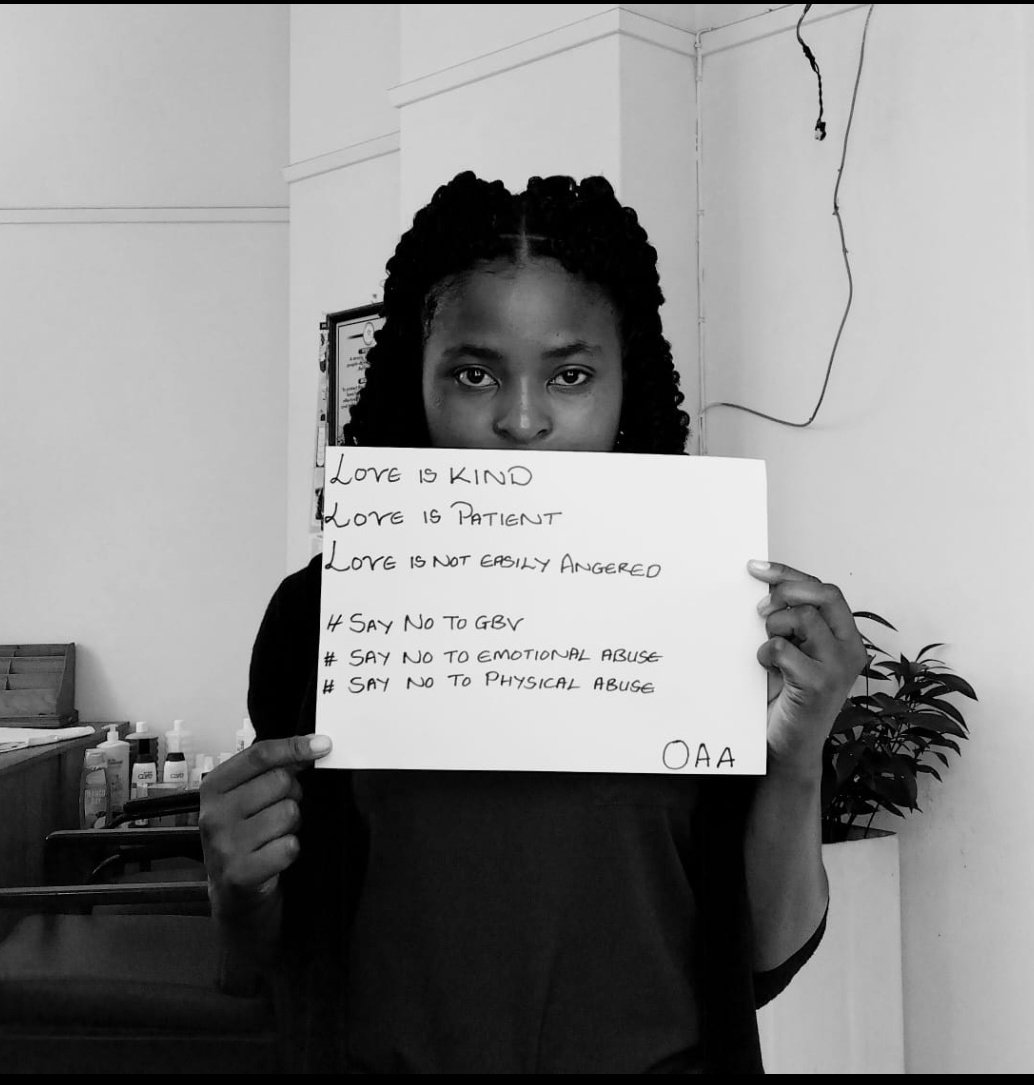 LOVE IS KIND
LOVE IS PATIENT
LOVE IS NOT EASILY ANGERED
# SAY NO TO GBV
# SAY NO TO EMOTIONAL ABUSE
# SAY NO TO PHYSICAL ABUSE
OAA
care
care